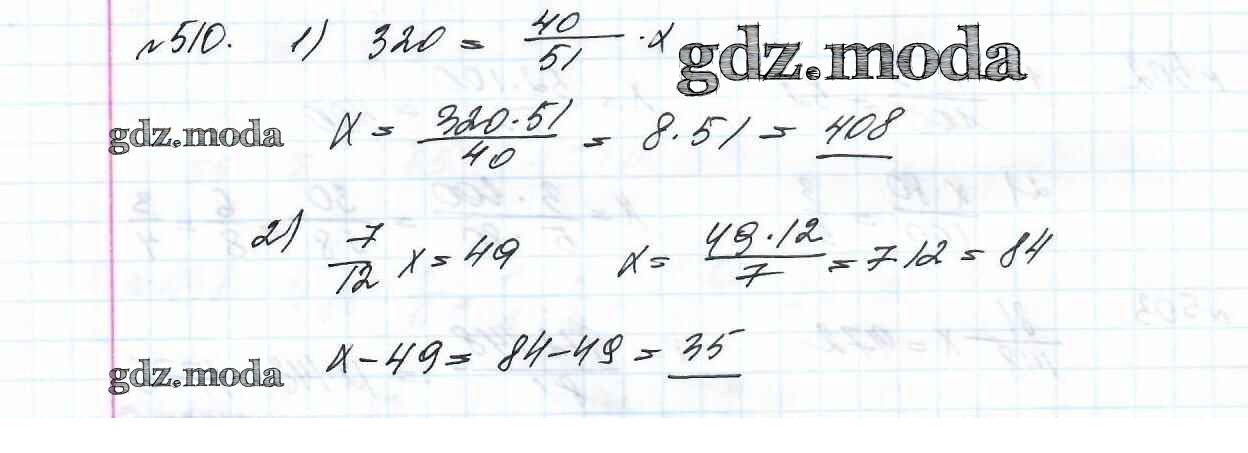 №510. 1) 320 = 40/51 · x gdz.moda
gdz.moda x = 320·51/40 = 8·51 = 408
2) 7/12 x = 49 x = 49·12/7 = 7 12 = 84
gdz.moda x - 49 = 84 - 49 = 35